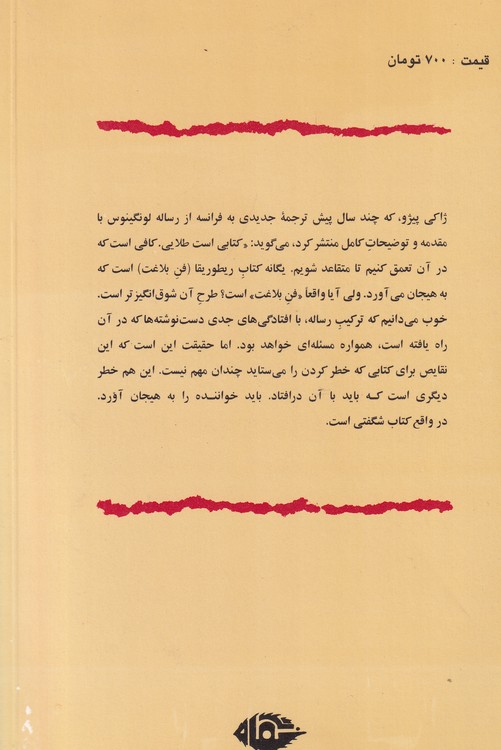 قیمت : ۷۰۰ تومان
ژاکی پیژو، که چند سال پیش ترجمهٔ جدیدی به فرانسه از رساله لونگینوس با
مقدمه و توضیحاتِ کامل منتشر کرد، می‌گوید: «کتابی است طلایی. کافی است که
در آن تعمق کنیم تا متقاعد شویم. یگانه کتابِ ریطوریقا (فنِ بلاغت) است که
به هیجان می‌آورد. ولی آیا واقعاً «فنِ بلاغت» است؟ طرح آن شوق‌انگیزتر است.
خوب می‌دانیم که ترکیبِ رساله، با افتادگی‌های جدی دست‌نوشته‌ها که در آن
راه یافته است، همواره مسئله‌ای خواهد بود. اما حقیقت این است که این
نقایص برای کتابی که خطر کردن را می‌ستاید چندان مهم نیست. این هم خطر
دیگری است که باید با آن درافتاد. باید خواننده را به هیجان آوَرد.
در واقع کتاب شگفتی است.
نگاه